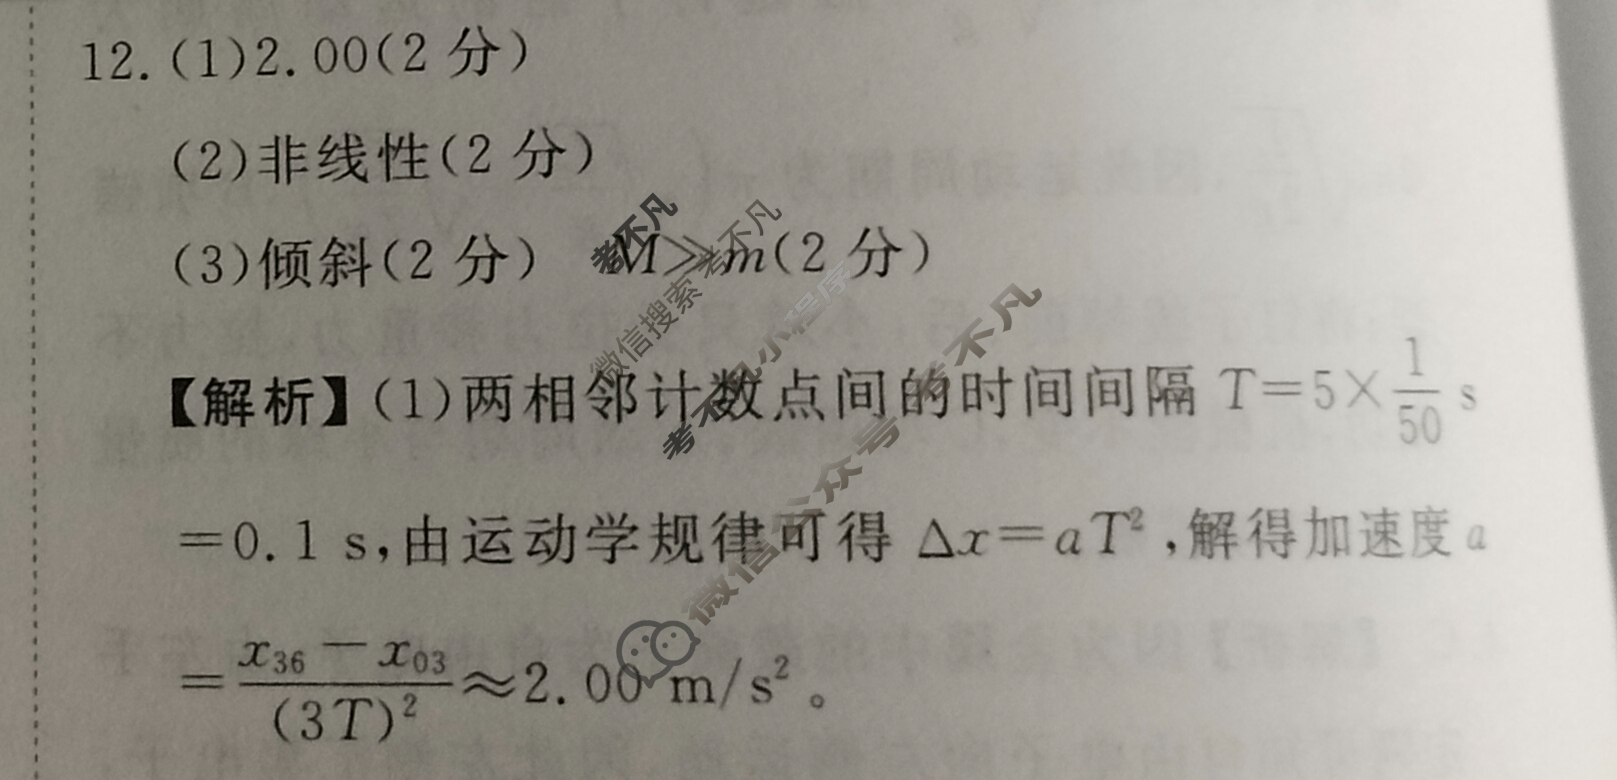 12.(1)2.00(2分)
(2)非线性(2分)
(3)倾斜(2分) M≫m(2分)
【解析】(1)两相邻计数点间的时间间隔 T=5×1/50 s
=0.1 s,由运动学规律可得 Δx=aT²,解得加速度 a
=(x₃₆-x₀₃)/(3T)²≈2.00 m/s²。
考不凡
微信搜索 考不凡
考不凡小程序
微信公众号 考不凡